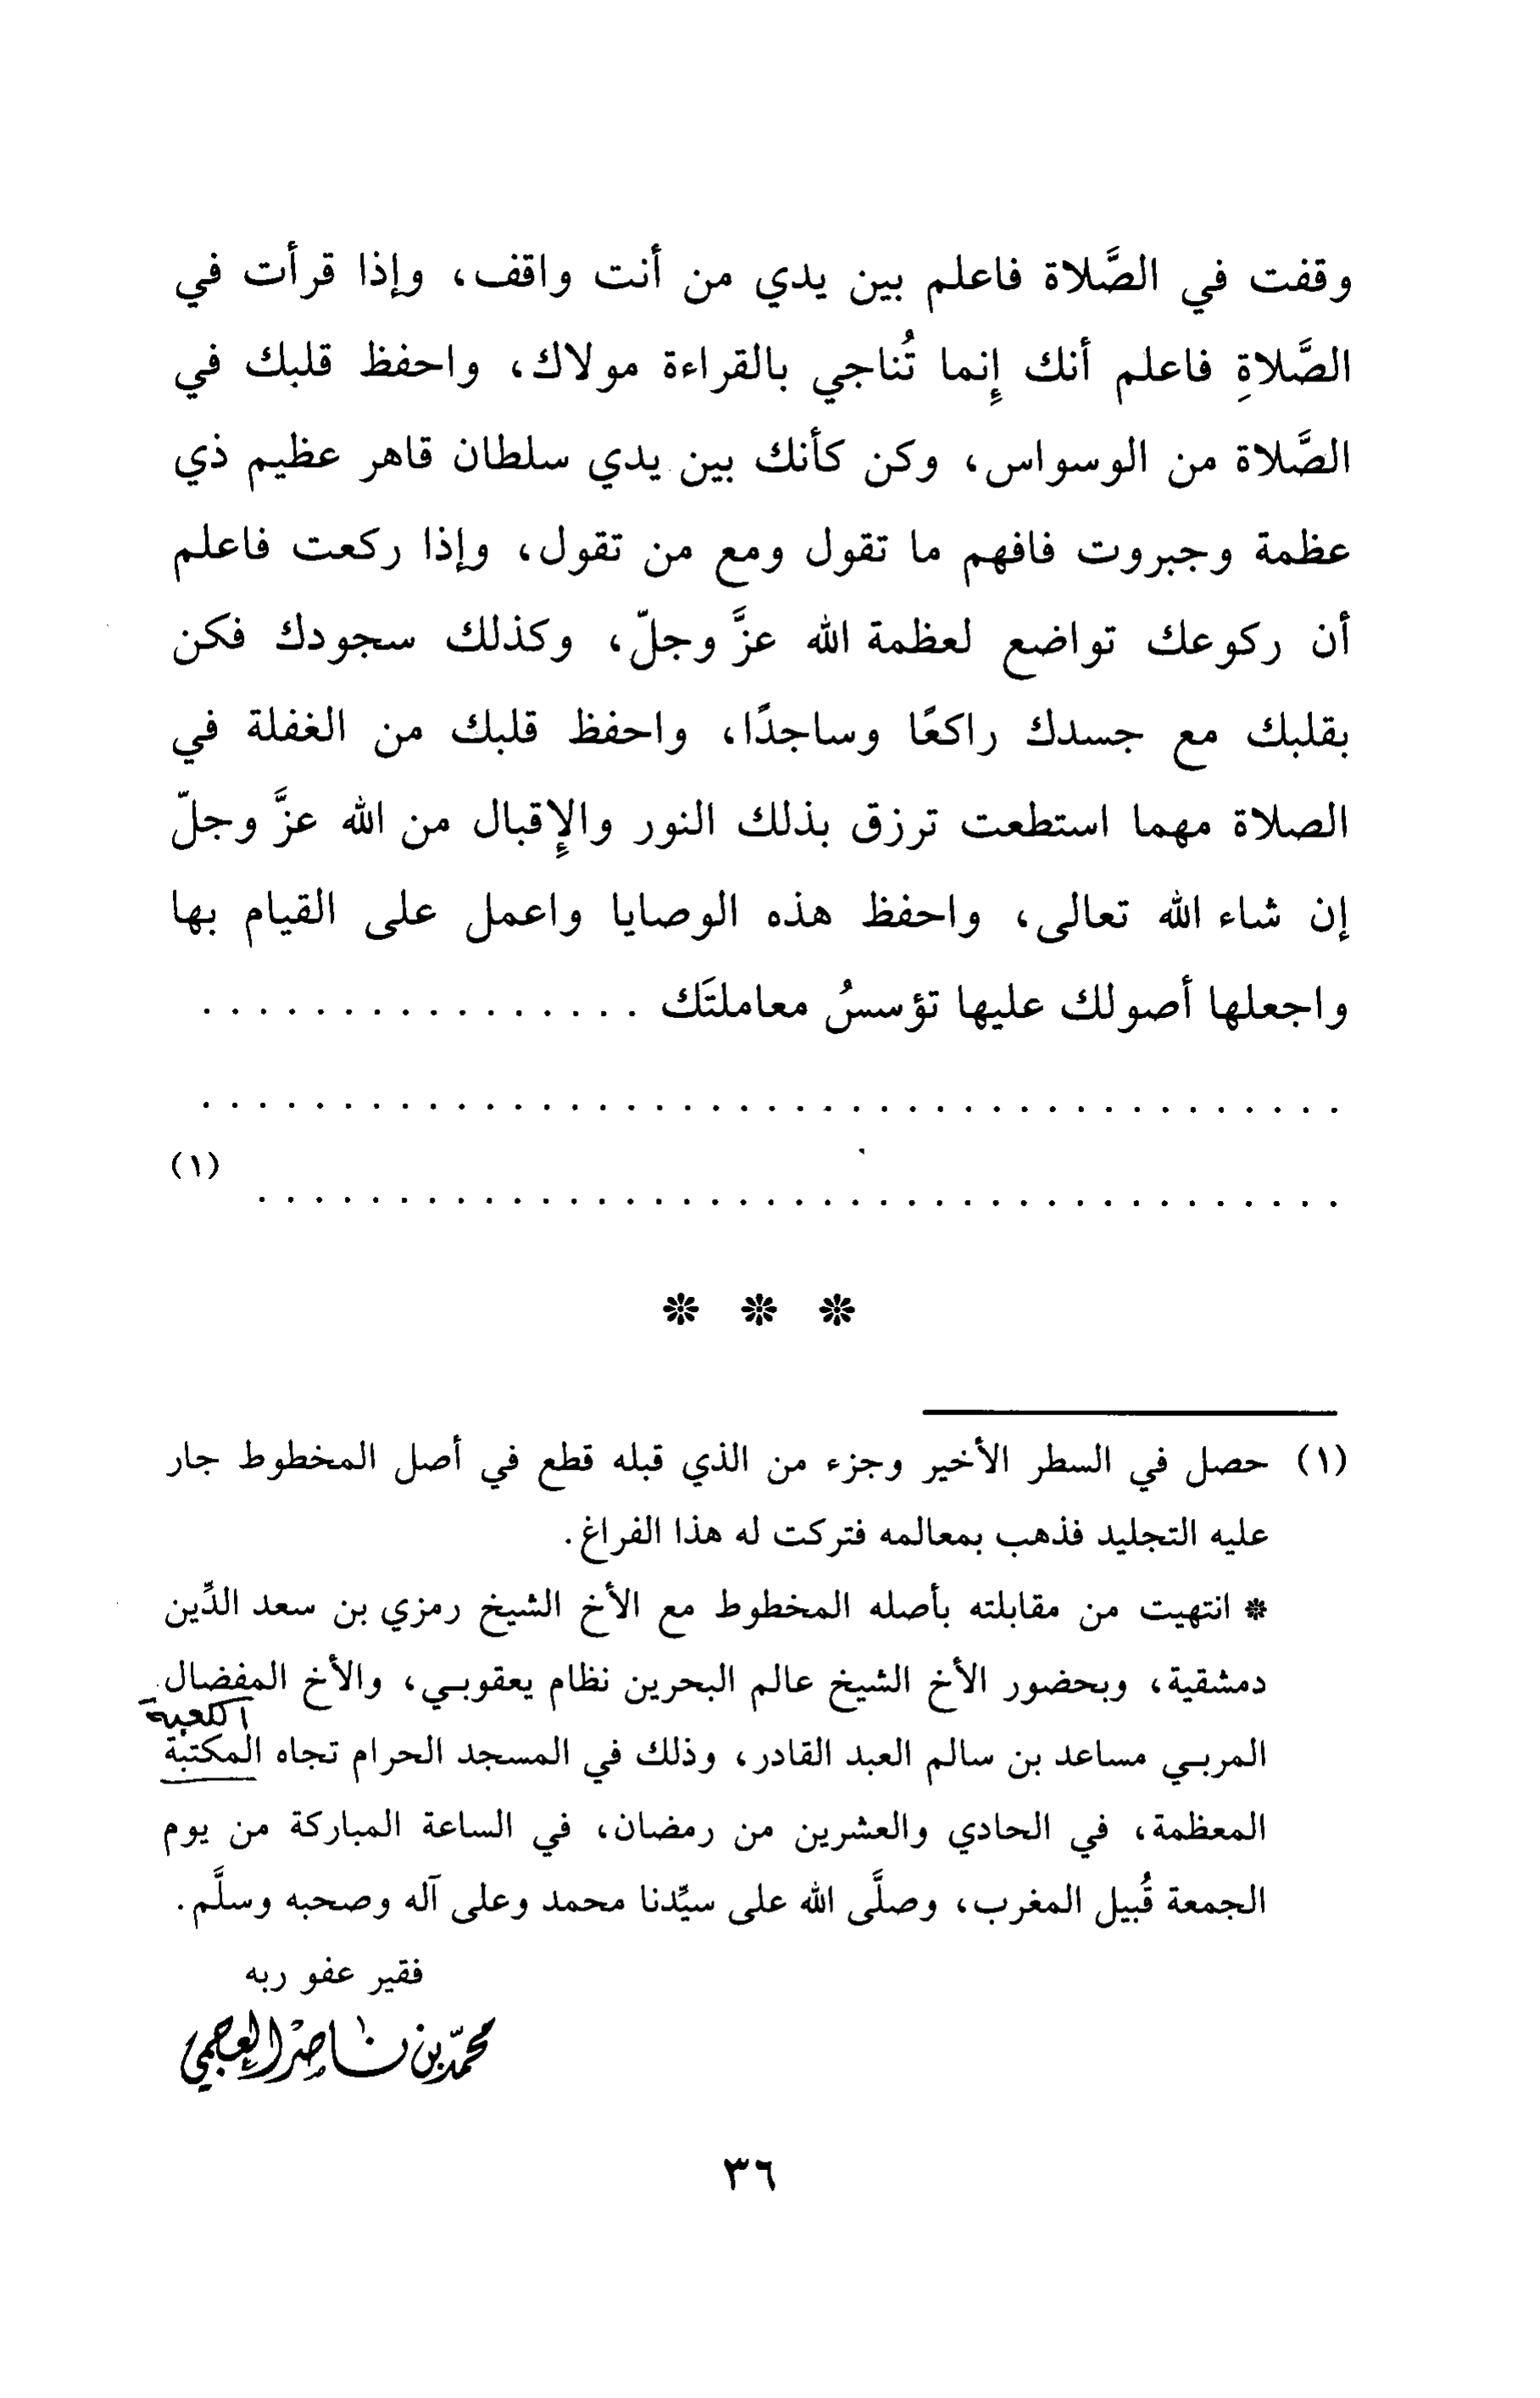 وقفت في الصَّلاة فاعلم بين يدي من أنت واقف، وإذا قرأت في
الصَّلاةِ فاعلم أنك إنما تُناجي بالقراءة مولاك، واحفظ قلبك في
الصَّلاة من الوسواس، وكن كأنك بين يدي سلطان قاهر عظيم ذي
عظمة وجبروت فافهم ما تقول ومع من تقول، وإذا ركعت فاعلم
أن ركوعك تواضع لعظمة الله عزَّ وجلّ، وكذلك سجودك فكن
بقلبك مع جسدك راكعًا وساجدًا، واحفظ قلبك من الغفلة في
الصلاة مهما استطعت ترزق بذلك النور والإقبال من الله عزَّ وجلّ
إن شاء الله تعالى، واحفظ هذه الوصايا واعمل على القيام بها
واجعلها أصولك عليها تؤسسُ معاملتَك . . . . . . . . . . . . . . . .
. . . . . . . . . . . . . . . . . . . . . . . . . . . . . . . . . . . . . . . . .
. . . . . . . . . . . . . . . . . . . . . . . . . . . . . . . . . . . . . . . (١)
* * *
(١) حصل في السطر الأخير وجزء من الذي قبله قطع في أصل المخطوط جار
عليه التجليد فذهب بمعالمه فتركت له هذا الفراغ.
* انتهيت من مقابلته بأصله المخطوط مع الأخ الشيخ رمزي بن سعد الدِّين
دمشقية، وبحضور الأخ الشيخ عالم البحرين نظام يعقوبي، والأخ المفضال
الكعبة
المربي مساعد بن سالم العبد القادر، وذلك في المسجد الحرام تجاه المكتبة
المعظمة، في الحادي والعشرين من رمضان، في الساعة المباركة من يوم
الجمعة قُبيل المغرب، وصلَّى الله على سيِّدنا محمد وعلى آله وصحبه وسلَّم.
فقير عفو ربه
محمّد بن ناصر العجمي
٣٦